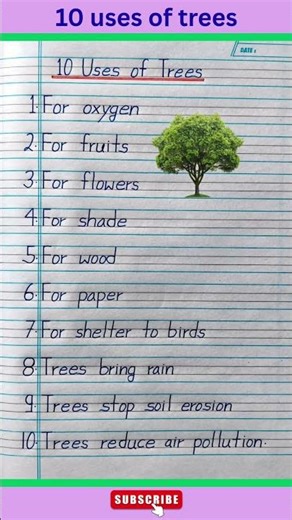 10 uses of trees
DATE:
10 Uses of Trees
1. For oxygen
2. For fruits
3. For flowers
4. For shade
5. For wood
6. For paper
7. For shelter to birds
8. Trees bring rain
9. Trees stop soil erosion
10. Trees reduce air pollution.
SUBSCRIBE